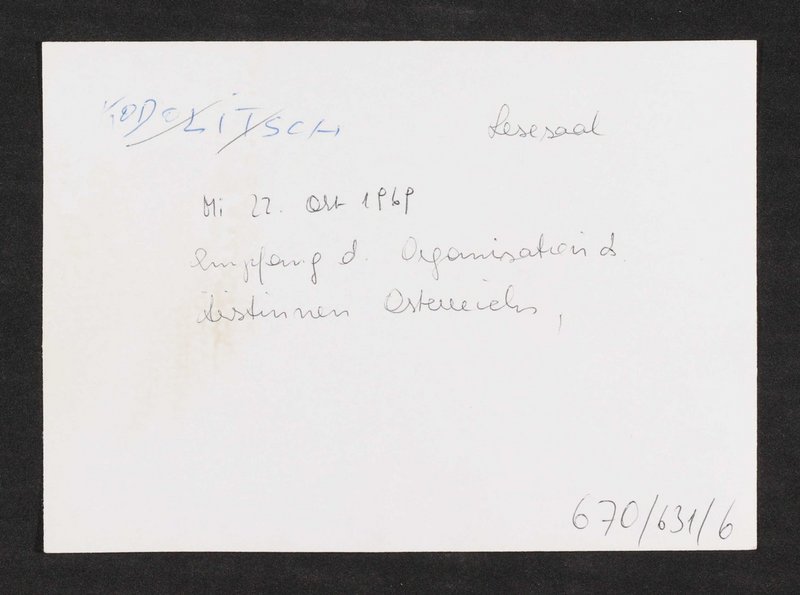 KODOLITSCH
Lesesaal
Mi 22. Okt 1969
Empfang d. Organisation d.
Ärztinnen Österreichs,
670/631/6